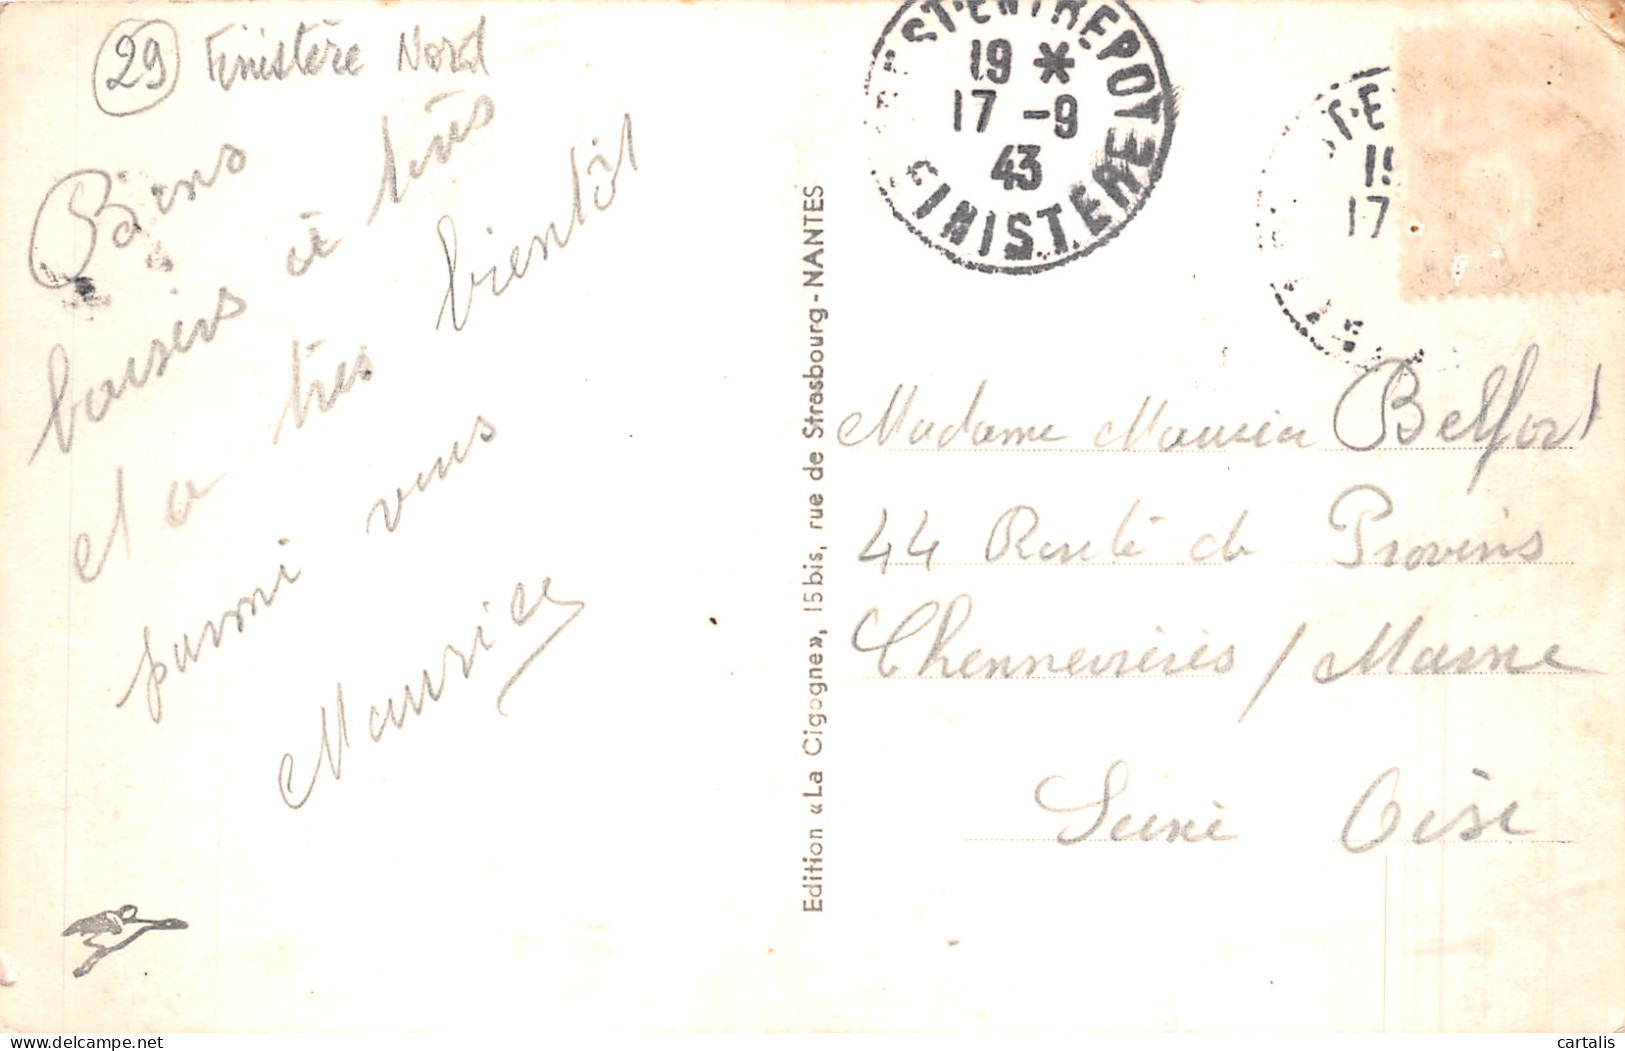 29 Finistère Nord
Bons
baisers à tous
et a très bientôt
parmi vous
Maurice
Edition «La Cigogne», 15bis, rue de Strasbourg - NANTES
BREST-ENTREPOT
19 *
17 -9
43
FINISTERE
ST-E
19
17
Madame Maurice Belfort
44 Route de Provins
Chennevières / Marne
Seine Oise
cartalis